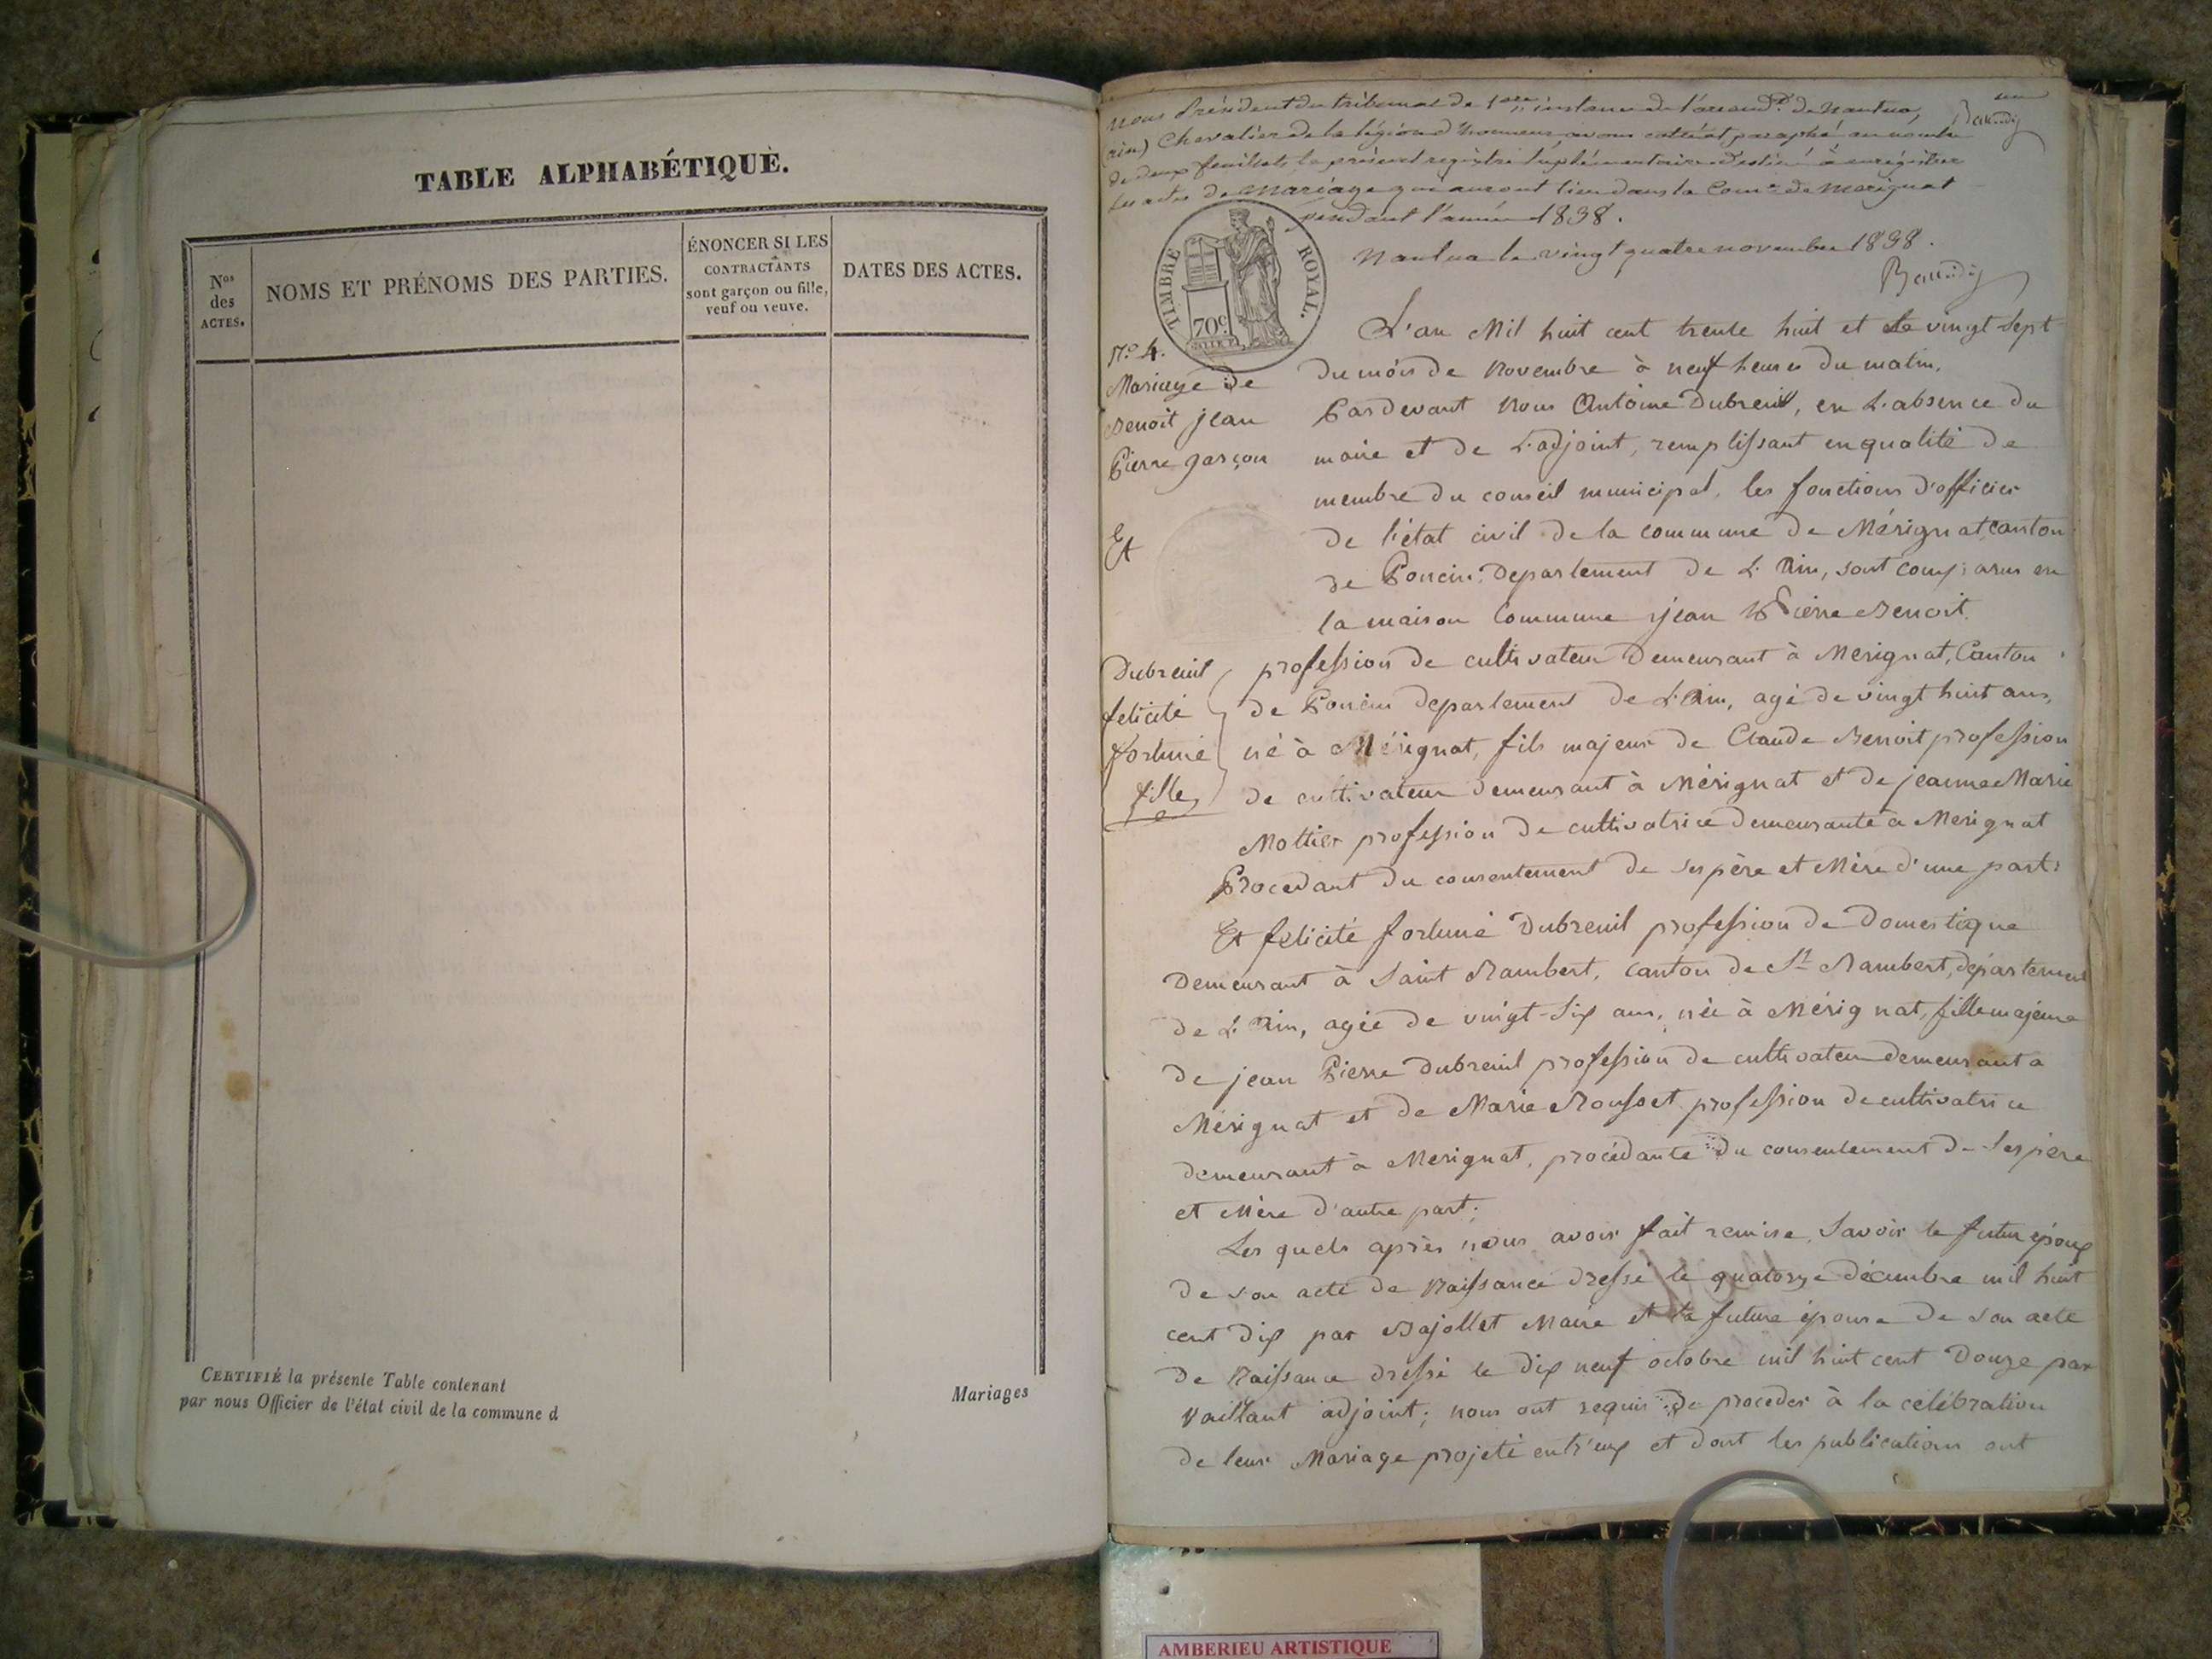 TABLE ALPHABÉTIQUE.
Nos des ACTES.
NOMS ET PRÉNOMS DES PARTIES.
ÉNONCER SI LES
CONTRACTANTS
sont garçon ou fille,
veuf ou veuve.
DATES DES ACTES.
CERTIFIÉ la présente Table contenant
par nous Officier de l'état civil de la commune d
Mariages
Nous Président du tribunal de 1ere instance de l'arrondt de Nantua,
(ain) Chevalier de la légion d'honneur, avons cotté et paraphé au nombre
de deux feuillets le présent registre suplémentaire destiné à enregistrer
Les actes de Mariage qui auront lieu dans la Come de Merignat
pendant l'année 1838.
Nantua le vingt quatre novembre 1838.
TIMBRE ROYAL.
70c
N.o 4.
Mariage de
Benoit jean
Pierre garçon
Et
Dubreuil
felicité
fortuné
fille
L'an Mil huit cent trente huit et le vingt-sept
du mois de Novembre à neuf heures du matin,
Pardevant Nous Antoine Dubreuil, en L'absence du
maire et de L'adjoint, remplissant en qualité de
membre du conseil municipal, les fonctions d'officier
de l'état civil de la commune de Mérignat, canton
de Poncin, departement de L'Ain, sont comparus en
la maison Commune jean Pierre Benoit
profession de cultivateur Demeurant à Merignat, Canton
de Poncin departement de L'Ain, agé de vingt huit ans,
né à Mérignat, fils majeur de Claude Benoit profession
de cultivateur demeurant à Mérignat et de jeanne Marie
Mottier profession de cultivatrice demeurante à Merignat
Procedant du consentement de ses père et Mère d'une part;
Et felicité fortuné Dubreuil profession de Domestique
Demeurant à Saint Rambert, canton de St Rambert, département
de L'Ain, agée de vingt-six ans, née à Mérignat, fille majeure
de jean Pierre Dubreuil profession de cultivateur demeurant à
Mérignat et de Marie Rousset profession de cultivatrice
demeurant à Merignat, procédante du consentement de ses père
et Mère d'autre part;
Les quels après nous avoir fait remise, Savoir le futur époux
de son acte de Naissance dressé le quatorze décembre mil huit
cent dix par Bajollet Maire et la future épouse de son acte
de Naissance dressé le dix neuf octobre mil huit cent Douze par
Vaillant adjoint; nous ont requis de proceder à la célébration
de leur Mariage projeté entr'eux et dont les publications ont
AMBERIEU ARTISTIQUE